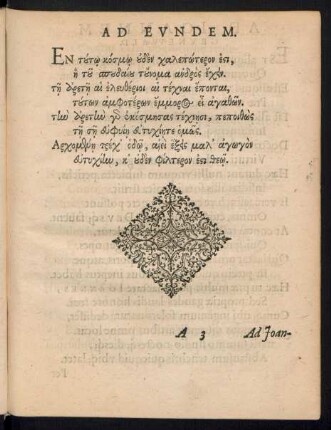 AD EVNDEM.
ΕΝ τȣ́τῳ κόσμῳ ȣ̓δὲν χαλεπώτερον ἐςι,
ἢ τȣ͂ σπȣδαίȣ τȣ̓́νομα ἀνδρὸς ἔχειν.
τῇ ἀρετῇ αἱ ἐλευθέριαι αἱ τέχναι ἕπονται,
τȣ́των ἀμφοτέρων ἔμμορος εἶ ἀγαθῶν.
τὴν ἀρετὴν γὸ ἐκόσμησας τέχνῃσι, πεποιθὼς
τῇ σῇ
Ἀρχομένη ὁδῷ, αἰεὶ ἑξῆς μάλʼ ἀγωγὸν
εὐτυχίαν, κ ȣ̓δὲν φίλτερον ἐςι θεῷ.
A 3 Ad Joan-